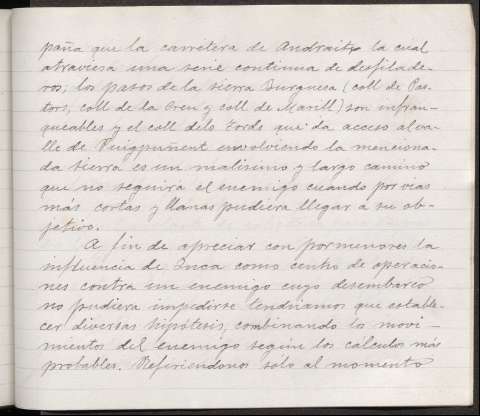 paña que la carretera de Andraitx la cual
atraviesa una serie continua de desfilade-
ros; los pasos de la sierra Burguesa (coll de Pas-
tors, coll de la Creu y coll de Marill) son infran-
queables y el coll dels Tords que da acceso al va-
lle de Puigpuñent envolviendo la menciona-
da sierra es un malisimo y largo camino
que no seguira el enemigo cuando por vias
más cortas y llanas pudiera llegar a su ob-
jetivo.
A fin de apreciar con pormenores la
influencia de Inca como centro de operacio-
nes contra un enemigo cuyo desembarco
no pudiera impedirse tendriamos que estable-
cer diversas hipótesis, combinando los movi-
mientos del enemigo según los cálculos más
probables. Refiriendonos sólo al momento